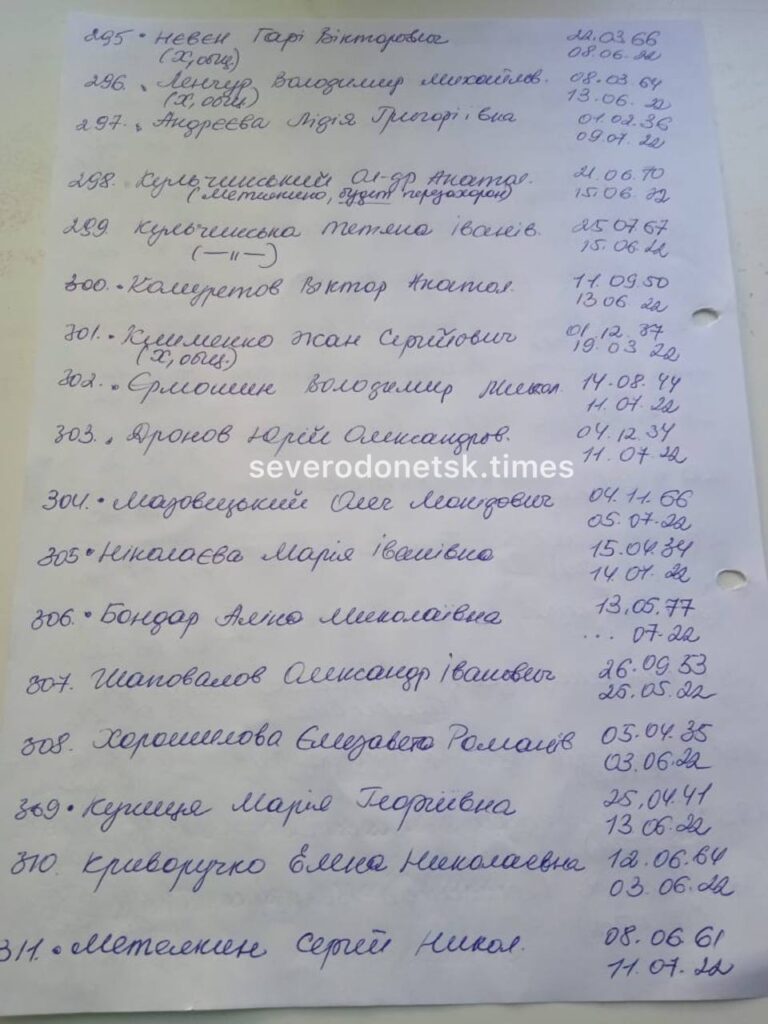 295 • Невєн Гарі Вікторович 22.03.66
(Х, общ) 08.06.22
296. • Ленчуд Володимир Михайлов. 08.03.64
(Х, общ) 13.06.22
297. • Андрєєва Лідія Григоріївна 01.02.36
09.07.22
298. Кульчинський Ол-др Анатол. 21.06.70
(Метьолкіно, будет перезахорон) 15.06.22
299 Кульчинська Тетяна Іванів. 25.07.67
(—"—) 15.06.22
300. • Викторович Анатол. 11.09.50
13.06.22
301. • Клименко Жан Сергійович 01.12.37
(Х, общ.) 19.03.22
302. • Єрмошин Володимир Микол. 14.08.44
11.07.22
303. • Дронов Юрій Олександров. 04.12.34
11.07.22
severodonetsk.times
304. • Мазовицький Олег 04.11.66
05.07.22
305 • Ніколаєва Марія Іванівна 15.04.34
14.07.22
306. • Бондар Аліна Миколаївна 13.05.77
... 07.22
307. Шаповалов Олександр Іванович 26.09.53
25.05.22
308. Хорошилова Єлизавета Романів 05.04.35
03.06.22
309 • Куниця Марія Георгіївна 25.04.41
13.06.22
310. Криворучко Елена Николаевна 12.06.64
03.06.22
311. • Метелкин Сергій Никол. 08.06.61
11.07.22